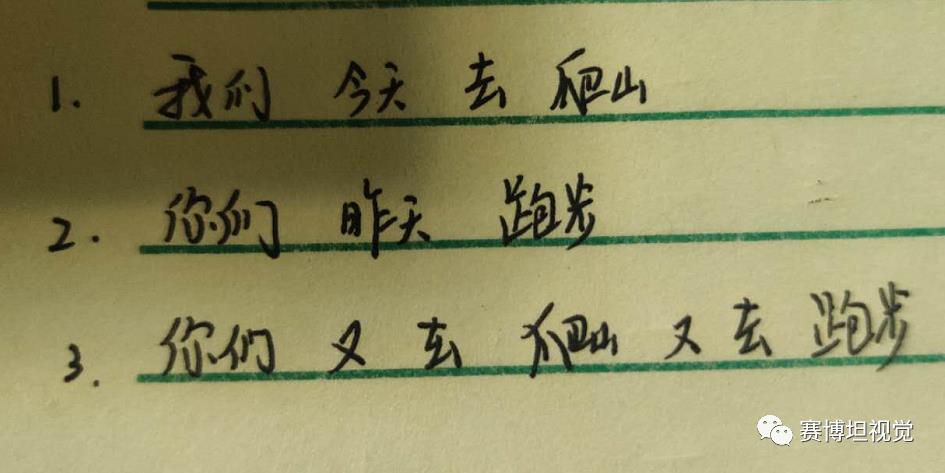 1. 我们 今天 去 爬山
2. 你们 昨天 跑步
3. 你们 又 去 爬山 又 去 跑步
赛博坦视觉